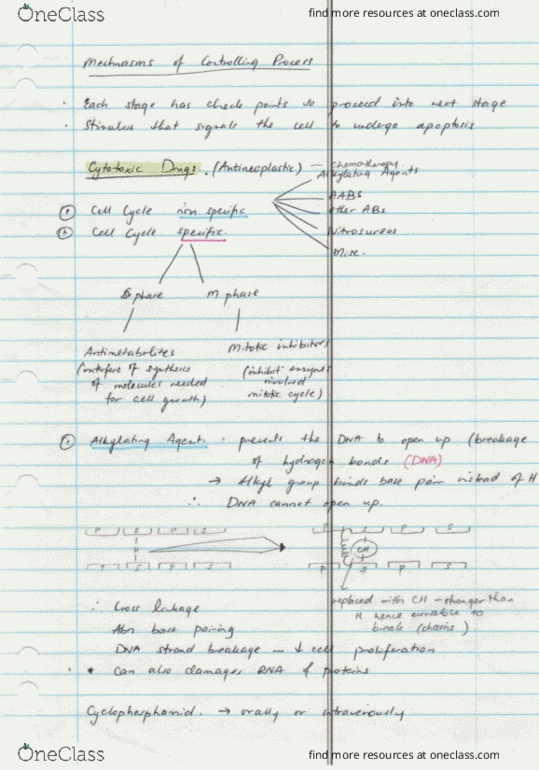 OneClass
find more resources at oneclass.com
Mechnasms of Controlling Process
· Each stage has check points to proceed into next stage
· Stimulus that signals the cell to undergo apoptosis
Cytotoxic Drugs. (Antineoplastic) — Chemotherapy.
Alkylating Agents
AABS
other ABs
Nitrosureas
Misc.
① Cell Cycle non specific
② Cell Cycle specific.
S phase
M phase
Antimetabolites
(interfere of synthesis
of molecules needed
for cell growth)
Mitotic inhibitors
(inhibit enzymes
involved
mitotic cycle)
① Alkylating Agents · prevents the DNA to open up (breakage
of hydrogen bonds (DNA)
→ Alkyl group binds base pair instead of H
∴ DNA cannot open up.
P S P S
P S P S
CH
replaced with CH - stronger than
H hence unable to
break (chains)
∴ Cross linkage
Abn base pairing
DNA strand breakage — ↓ cell proliferation
· Can also damages RNA & proteins
Cyclophosphomid. → orally or intraverously
OneClass
find more resources at oneclass.com